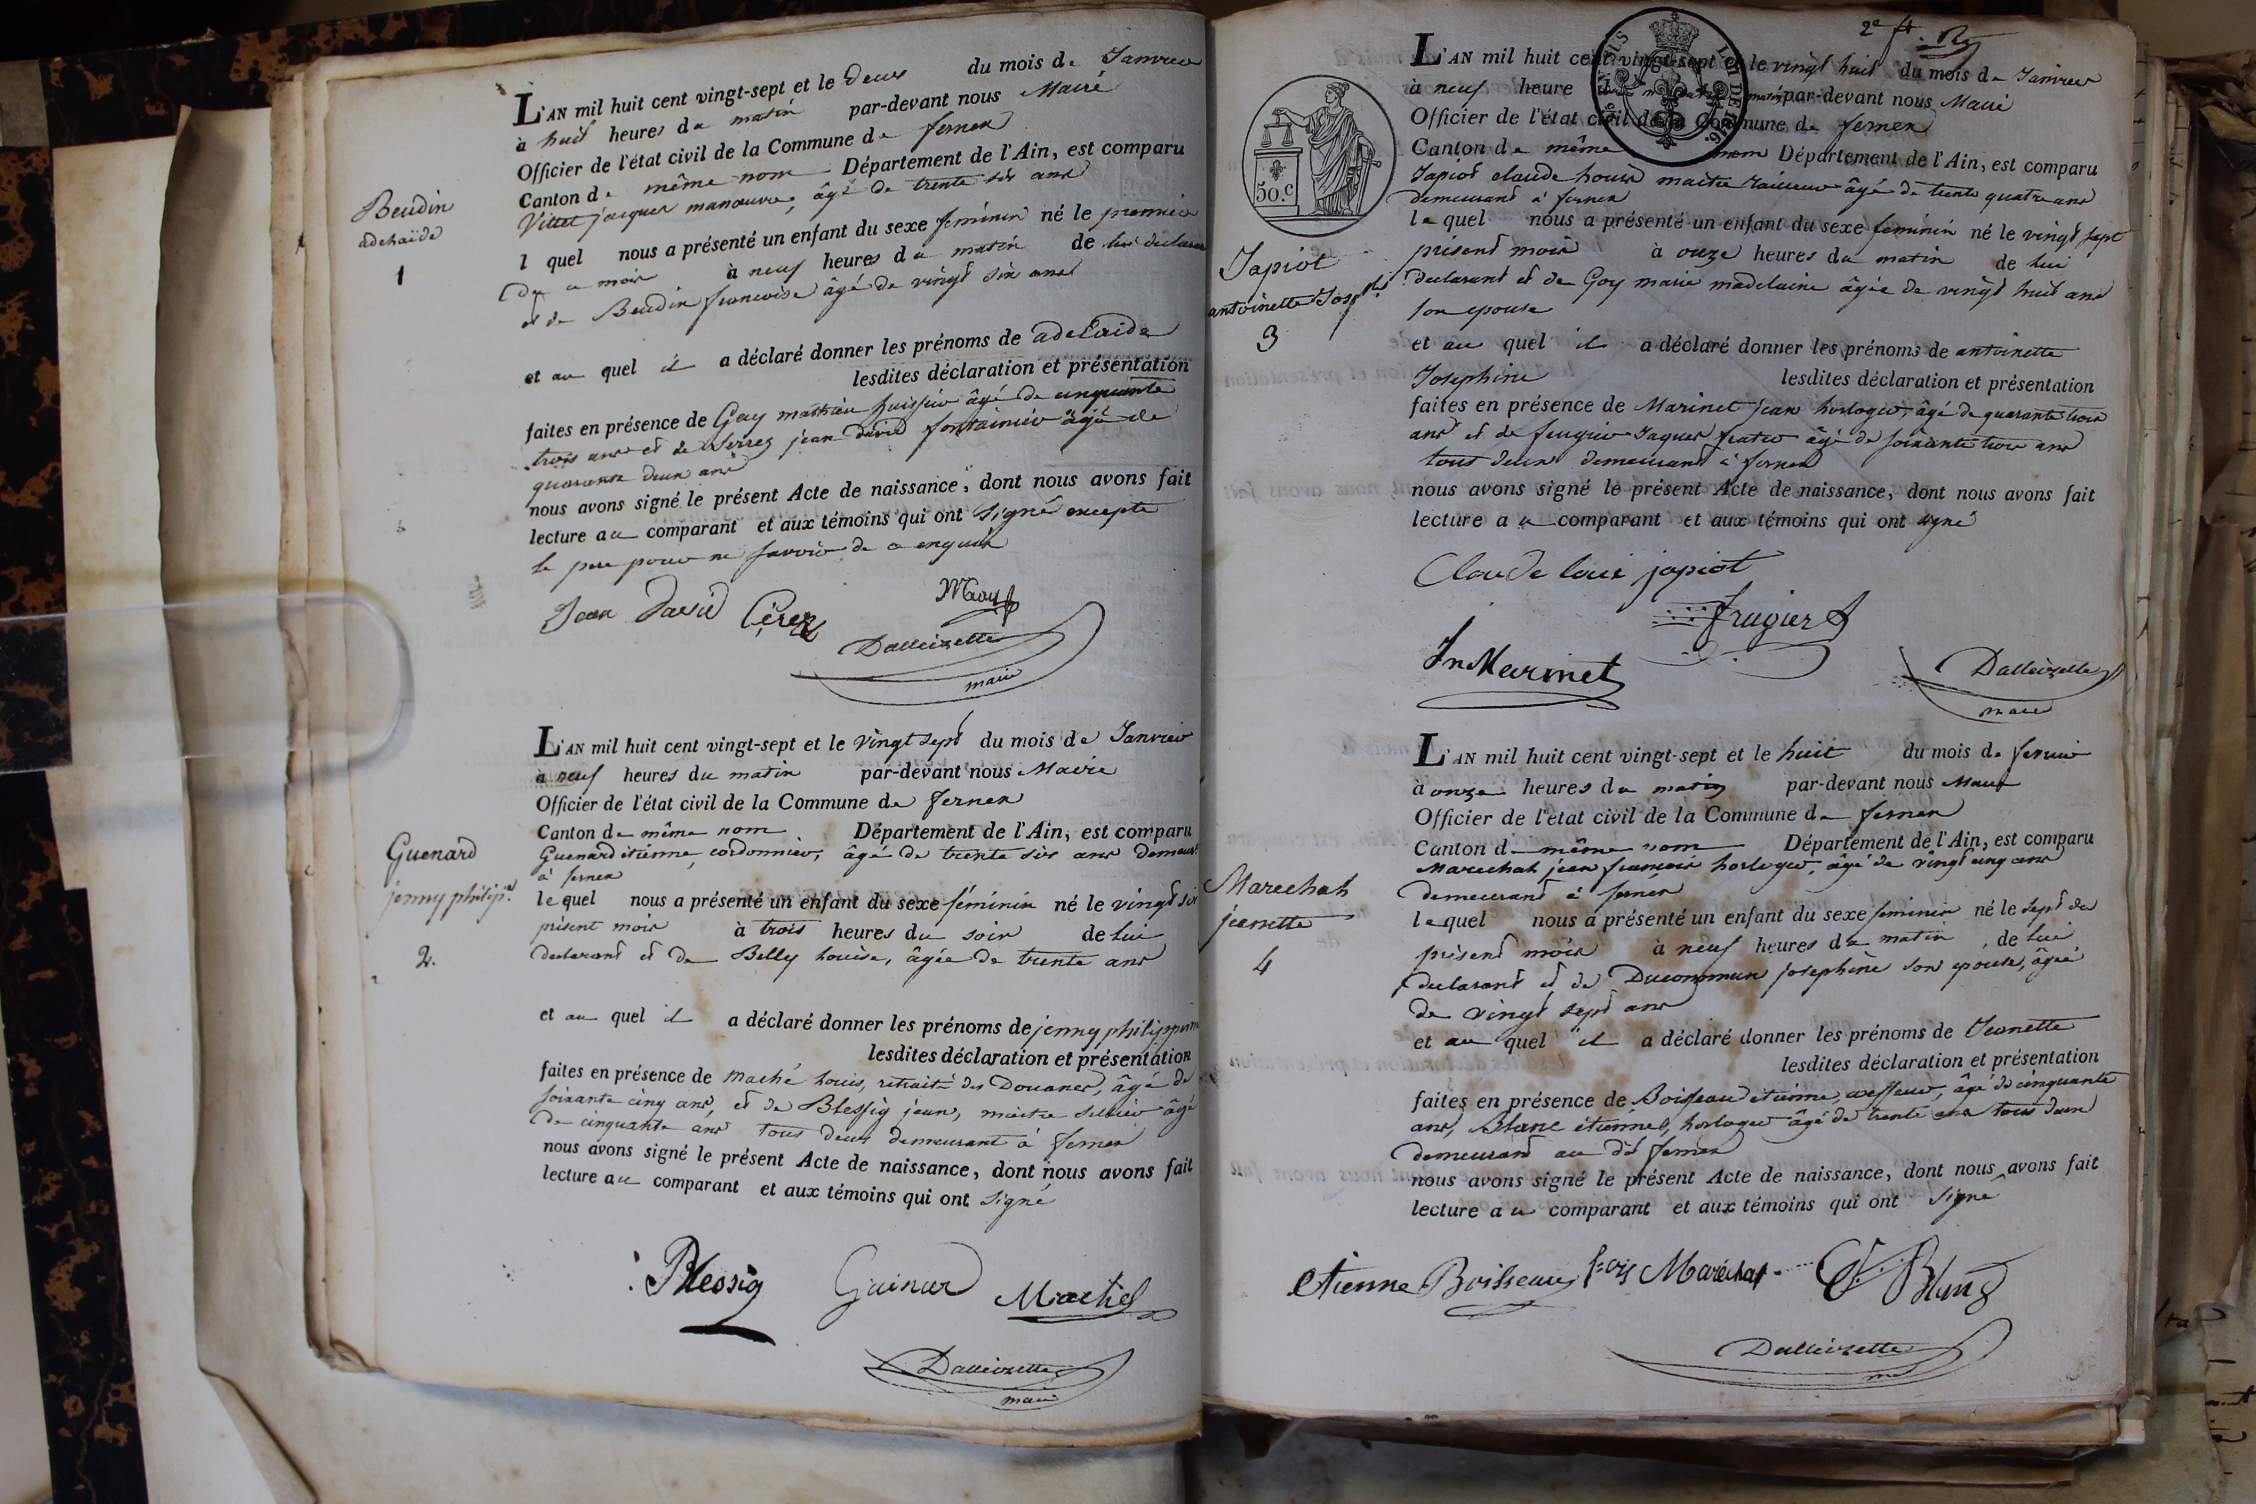 Beudin
adehaïde
1
L'AN mil huit cent vingt-sept et le deux du mois de Janvier
à huit heures du matin par-devant nous Maire
Officier de l'état civil de la Commune de ferney
Canton de même nom Département de l'Ain, est comparu
Villet jacques manœuvre, âgé de trente six ans
l quel nous a présenté un enfant du sexe féminin né le premier
du ce mois à neuf heures du matin de lui declarant
et de Beudin francoise âgé de vingt six ans
et au quel il a déclaré donner les prénoms de adelaide
lesdites déclaration et présentation
faites en présence de Gay mathieu huissier âgé de cinquante
trois ans et de Serrez jean david fontainier âgé de
quarante deux ans
nous avons signé le présent Acte de naissance, dont nous avons fait
lecture au comparant et aux témoins qui ont signé excepté
le pere pour ne savoir de ce enquis
Jean David Cérez
Dalleizette
maire
Guenard
jenny philip.e
2.
L'AN mil huit cent vingt-sept et le vingt sept du mois de Janvier
à neuf heures du matin par-devant nous Maire
Officier de l'état civil de la Commune de ferney
Canton de même nom Département de l'Ain, est comparu
Guenard étienne, cordonnier, âgé de trente six ans demeurt
à ferney
le quel nous a présenté un enfant du sexe féminin né le vingt six
présent mois à trois heures du soir de lui
declarant et de Belly Louise, âgée de trente ans
et au quel il a déclaré donner les prénoms de jenny philippine
lesdites déclaration et présentation
faites en présence de Maché Louis, retraité des Douanes, âgé de
soixante cinq ans, et de Blessig jean, maitre sellier âgé
de cinquante ans tous deux demeurant à ferney
nous avons signé le présent Acte de naissance, dont nous avons fait
lecture au comparant et aux témoins qui ont signé
Blessig Guinard Machez
Dalleizette
maire
2e ft.
50.c
LOI DE 1816.
Japiot
antoinette Josephe
3
L'AN mil huit cent vingt-sept et le vingt huit du mois de Janvier
à neuf heure du matin par-devant nous Maire
Officier de l'état civil de la Commune de ferney
Canton de même nom Département de l'Ain, est comparu
Japiot claude Louis maitre âgé de trente quatre ans
demeurant à ferney
le quel nous a présenté un enfant du sexe féminin né le vingt sept
présent mois à onze heures du matin de lui
declarant et de Goy marie madelaine âgée de vingt huit ans
son epouse
et au quel il a déclaré donner les prénoms de antoinette
Josephine lesdites déclaration et présentation
faites en présence de Marinet jean horloger, âgé de quarante trois
ans et de frugier Jaques frater âgé de soixante trois ans
tous deux demeurant à ferney
nous avons signé le présent Acte de naissance, dont nous avons fait
lecture a u comparant et aux témoins qui ont signé
Claude louis japiot
frugier
Jn Marinet
Dalleizette
maire
Marechah
jeanette
4
L'AN mil huit cent vingt-sept et le huit du mois de fevrier
à onze heures du matin par-devant nous Maire
Officier de l'état civil de la Commune de ferney
Canton d même nom Département de l'Ain, est comparu
Marechah jean francois horloger, âgé de vingt cinq ans
demeurant à ferney
le quel nous a présenté un enfant du sexe feminin né le sept du
présent mois à neuf heures du matin, de lui
declarant et de Ducommun josephine son epouse, âgée
de vingt sept ans
et au quel il a déclaré donner les prénoms de Jeanette
lesdites déclaration et présentation
faites en présence de Boisseau etienne, coeffeur, âgé de cinquante
ans, Blanc étienne, horloger âgé de trente ans tous deux
demeurant au dit ferney
nous avons signé le présent Acte de naissance, dont nous avons fait
lecture a u comparant et aux témoins qui ont signé
etienne Boisseau fcois Maréchal Et. Blanc
Dalleizette